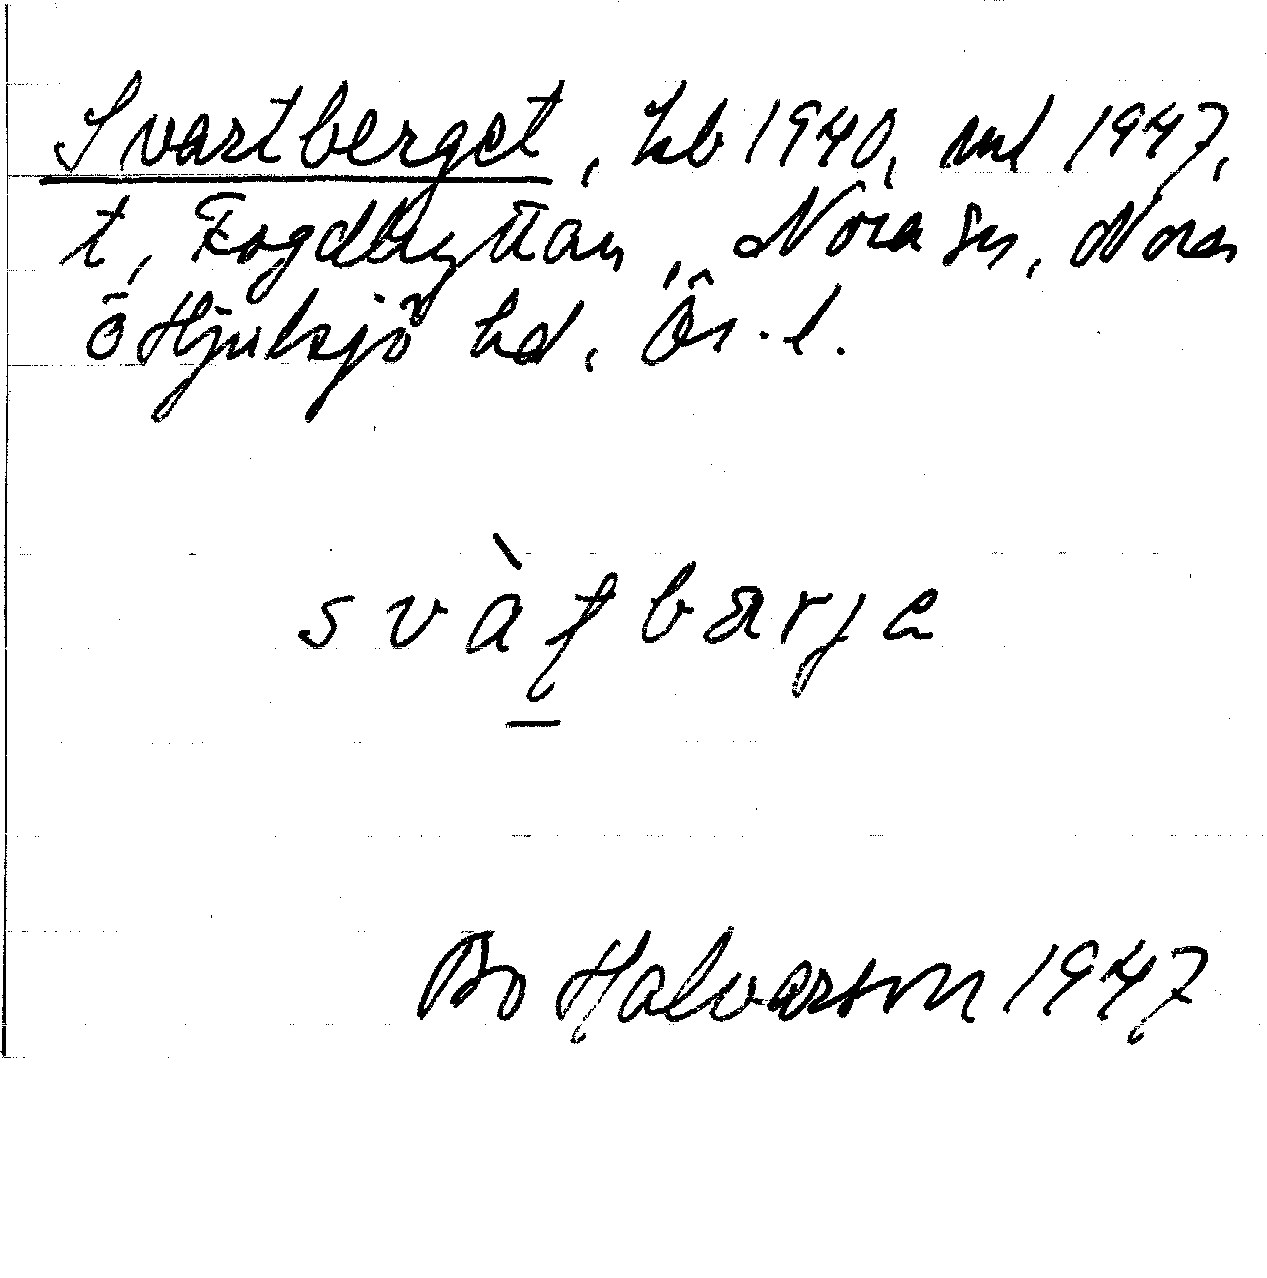 Svartberget, hb 1940, uul 1947,
t, Fogdhyttan, Nora sn, Nora
o Hjulsjö hd, Ör. l.
svàṭbärje
Bo Halvarson 1947